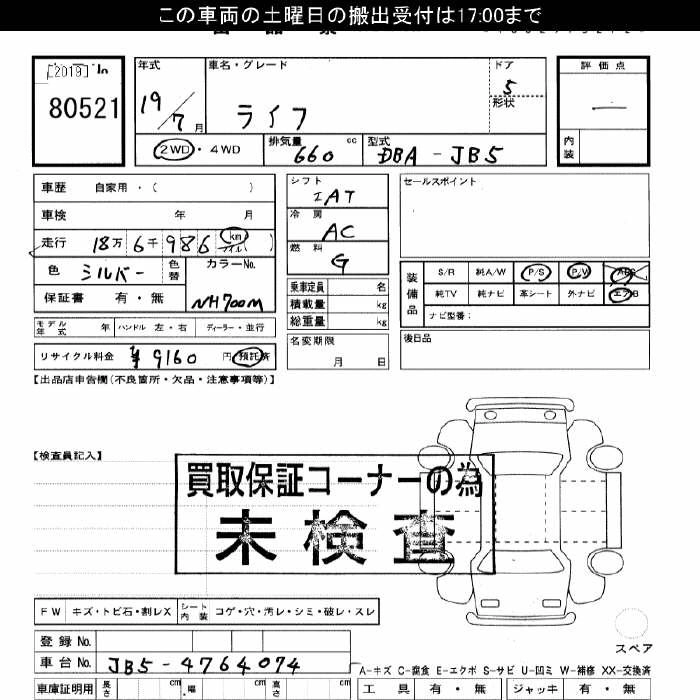 この車両の土曜日の搬出受付は17:00まで
[2019] In
80521
年式
19/7月
車名・グレード
ライフ
ドア
5
形状
評価点
―
内装
2WD・4WD
排気量
660
cc
型式
DBA-JB5
車歴 自家用・( )
車検 年 月
走行 18万6千986 km マイル( )
色 シルバー 色替
カラーNo.
NH700M
保証書 有・無
モデル年式 年 ハンドル 左・右 ディーラー・並行
リサイクル料金 ¥9160 円 預託済
シフト
IAT
冷房
AC
燃料
G
乗車定員 名
積載量 kg
総重量 kg
名変期限
月 日
セールスポイント
装備品
S/R 純A/W P/S P/W ABS
純TV 純ナビ 革シート 外ナビ エアB
ナビ型番:
後日品
【出品店申告欄(不良箇所・欠品・注意事項等)】
【検査員記入】
買取保証コーナーの為
未検査
FW キズ・トビ石・割レX シート内装 コゲ・穴・汚レ・シミ・破レ・スレ
登録No.
車台No. JB5-4764074
車庫証明用 長さ cm 幅 cm 高さ cm
スペア
A-キズ C-腐食 E-エクボ S-サビ U-凹ミ W-補修 XX-交換済
工具 有・無 ジャッキ 有・無